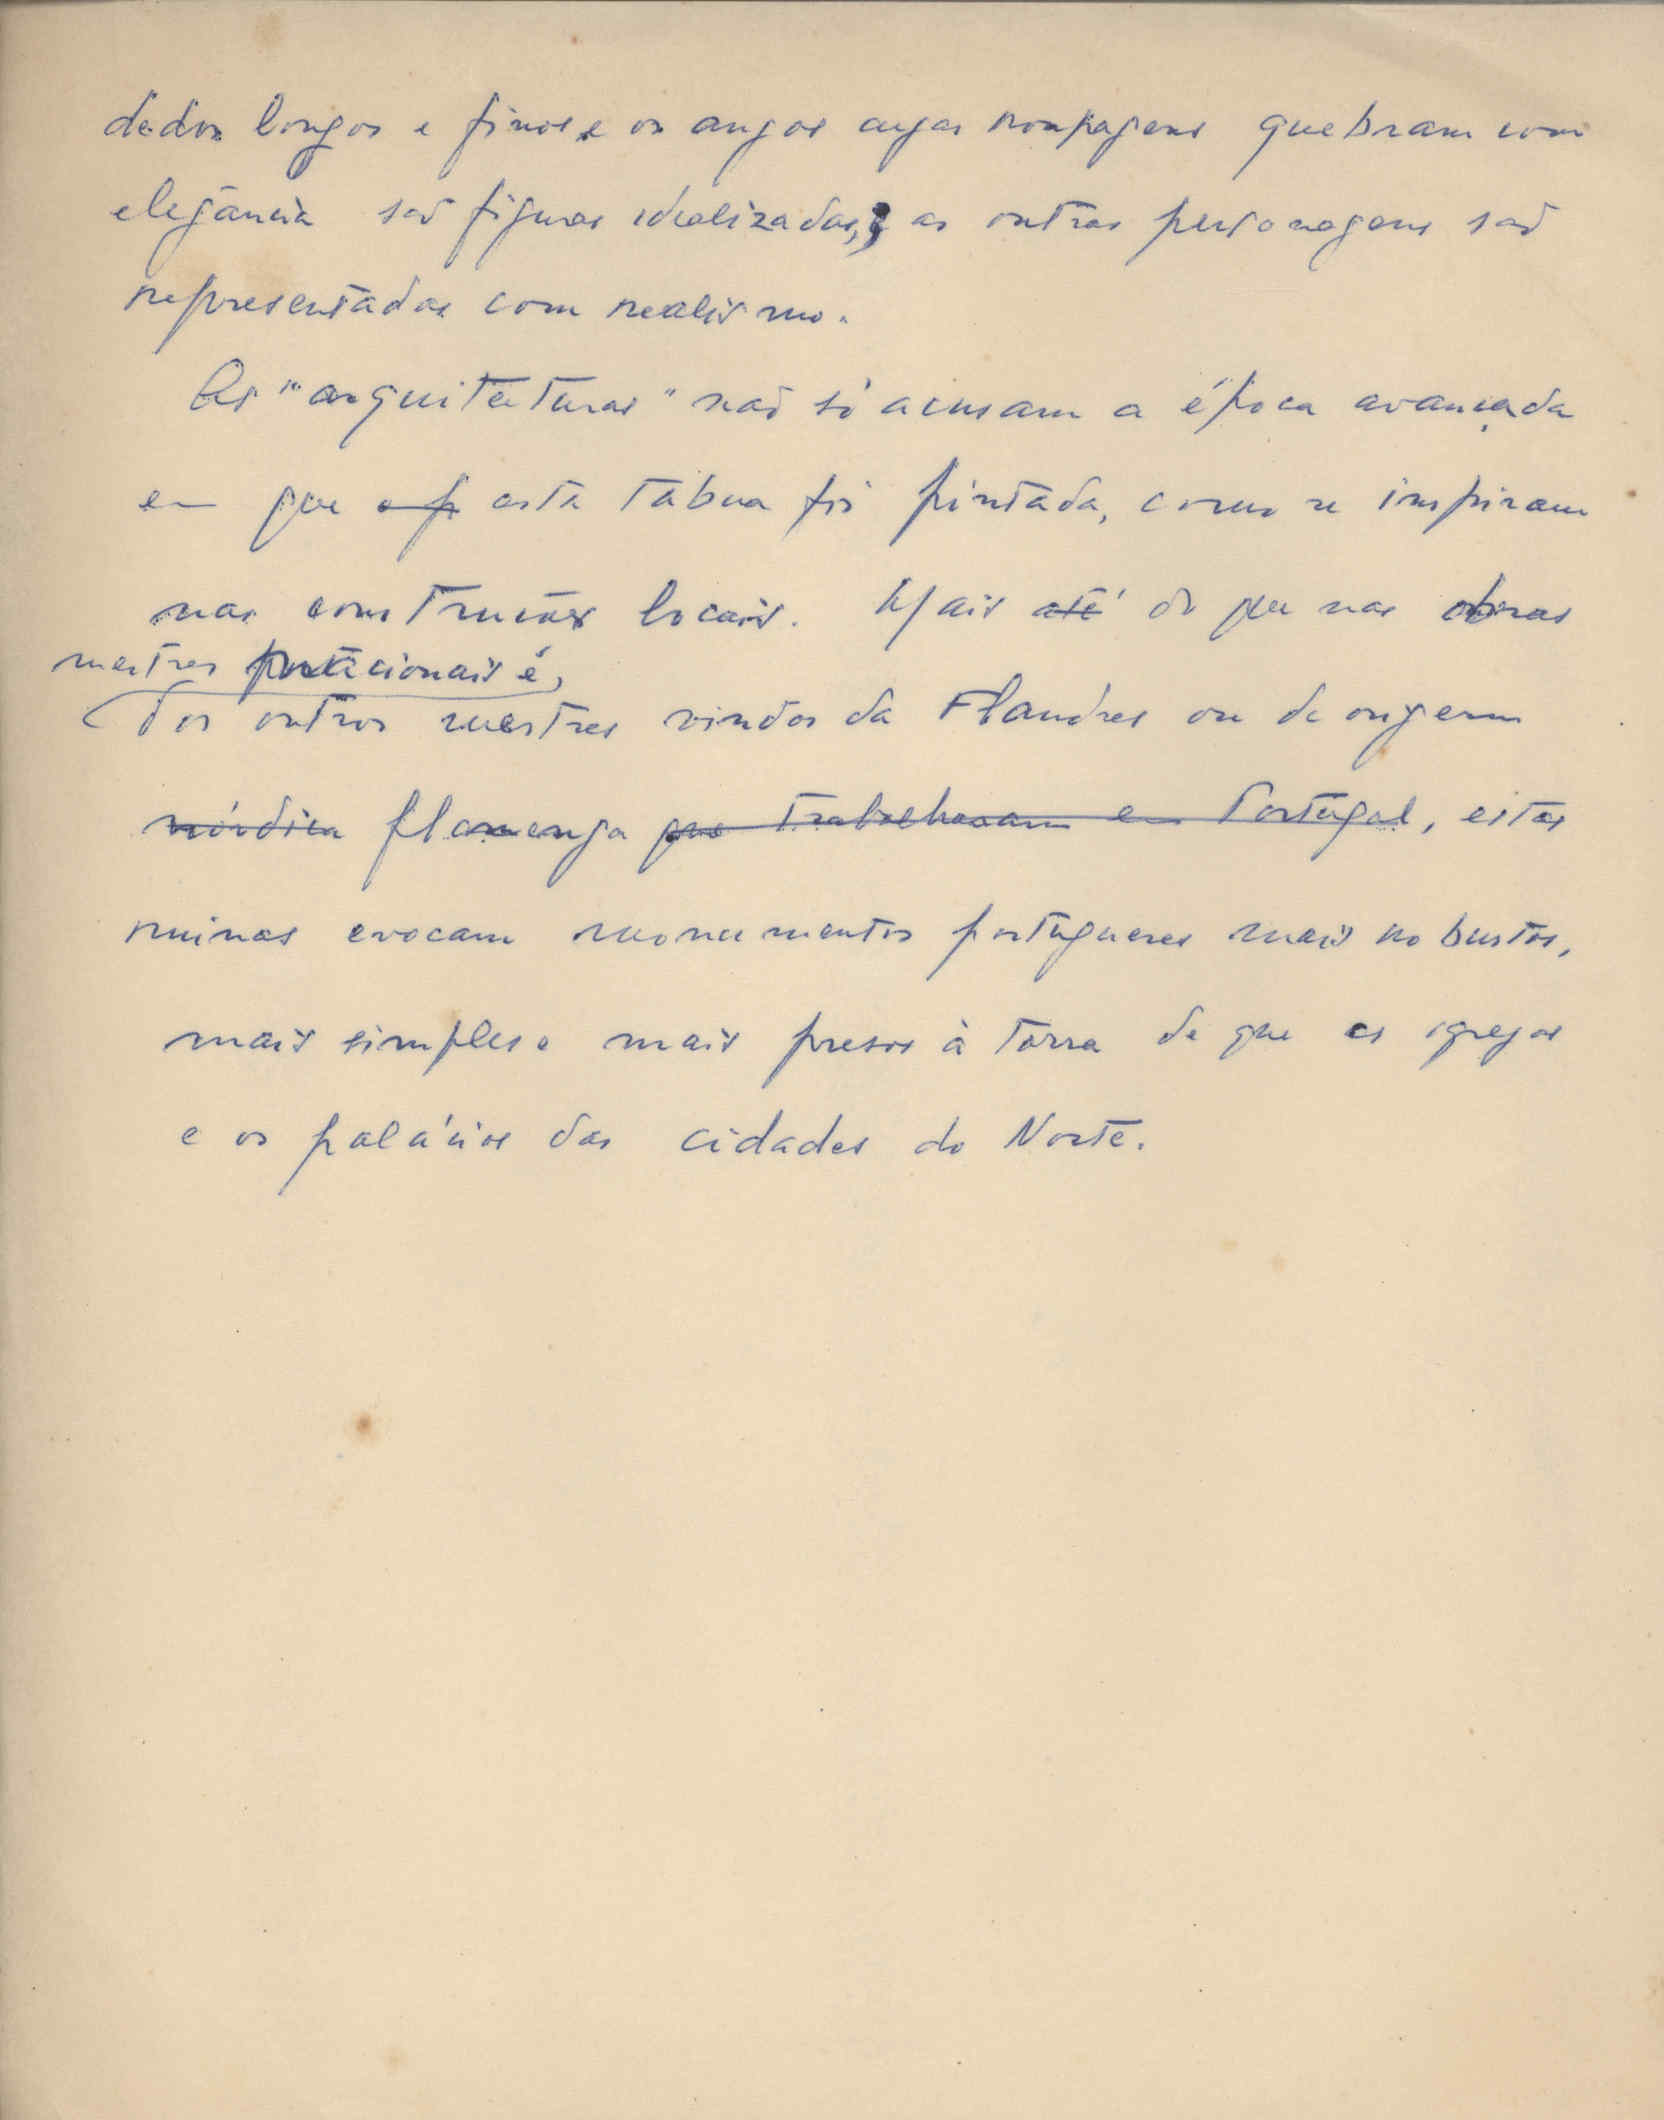 dedos longos e finos e os anjos cujas roupagens quebram com
elegância são figuras idealizadas, as outras personagens são
representadas com realismo.
As "arquitecturas" não só acusam a época avançada
em que esta tábua foi pintada, como se inspiram
nas construções locais. Mais até do que nas obras
mestres é,
dos outros mestres vindos da Flandres ou de origem
nórdica flamenga que trabalhavam em Portugal, estas
ruinas evocam monumentos portugueses mais robustos,
mais simples e mais presos à terra do que as igrejas
e os palácios das cidades do Norte.